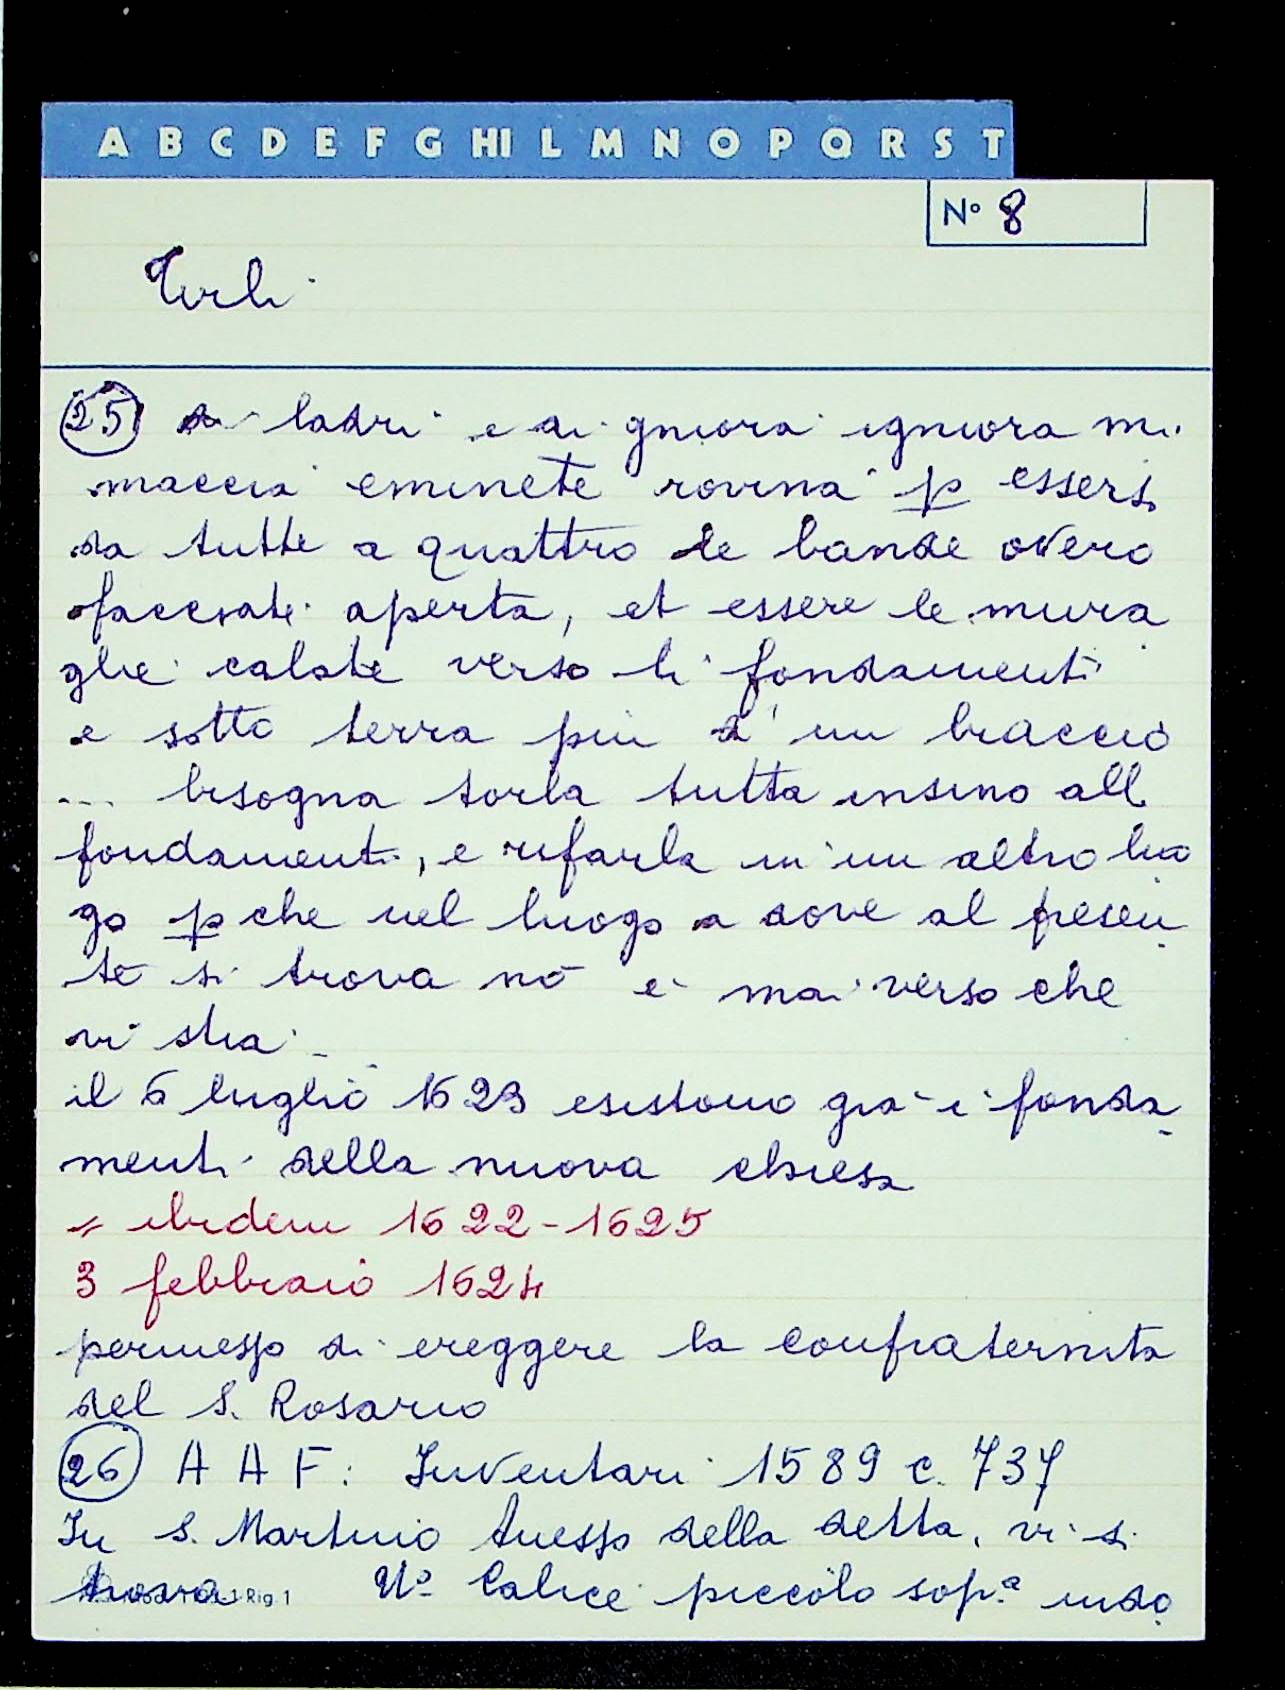 A B C D E F G HI L M N O P Q R S T
N° 8
Tirli
25 di ladri e di gniora igniora mi
maccia eminēte rovina p essersi
da tutte a quattro le bande overo
facciate aperta, et essere le mura
glie calate verso li fondamenti
e sotto terra più d'un braccio
... bisogna torla tutta insino alli
fondamenti, e rifarla in un altro luo
go pche nel luogo a dove al presen
te si trova nō è mai verso che
vi stia.
il 6 luglio 1623 esistono già i fonda
menti della nuova chiesa
= ibidem 1622-1625
3 febbraio 1624
permesso di ereggere la confraternita
del S. Rosario
26 A A F: Inventari 1589 c. 737
In S. Martino della detta, vi si
trova N° Calice piccolo sop.ª indo
Rig. 1